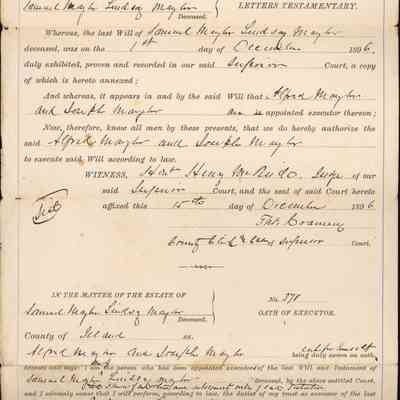 Samuel Maylor Lindsay Maylor
Deceased.
LETTERS TESTAMENTARY.
Whereas, the last Will of Samuel Maylor Lindsay Maylor
deceased, was on the 1st day of December 1896,
duly exhibited, proven and recorded in our said Superior Court, a copy
of which is hereto annexed;
And whereas, it appears in and by the said Will that Alfred Maylor
and Joseph Maylor appointed executor thereon;
Now, therefore, know all men by these presents, that we do hereby authorize the
said Alfred Maylor and Joseph Maylor
to execute said Will according to law.
WITNESS, Hon Henry McBride, Judge of our
said Superior Court, and the seal of said Court hereto
affixed this 15th day of December 1896
County Clerk Superior Court.
IN THE MATTER OF THE ESTATE OF
Samuel Maylor Lindsay Maylor
Deceased.
No. 378
OATH OF EXECUTOR.
County of Island ss.
Alfred Maylor and Joseph Maylor each for himself being duly sworn on oath,
deposes and says: I am the person who had been appointed executor of the last Will and Testament of
Samuel Maylor Lindsay Maylor deceased, by the above entitled Court,
and I solemnly swear that I will perform, according to law, the duties of my trust as executor of the last